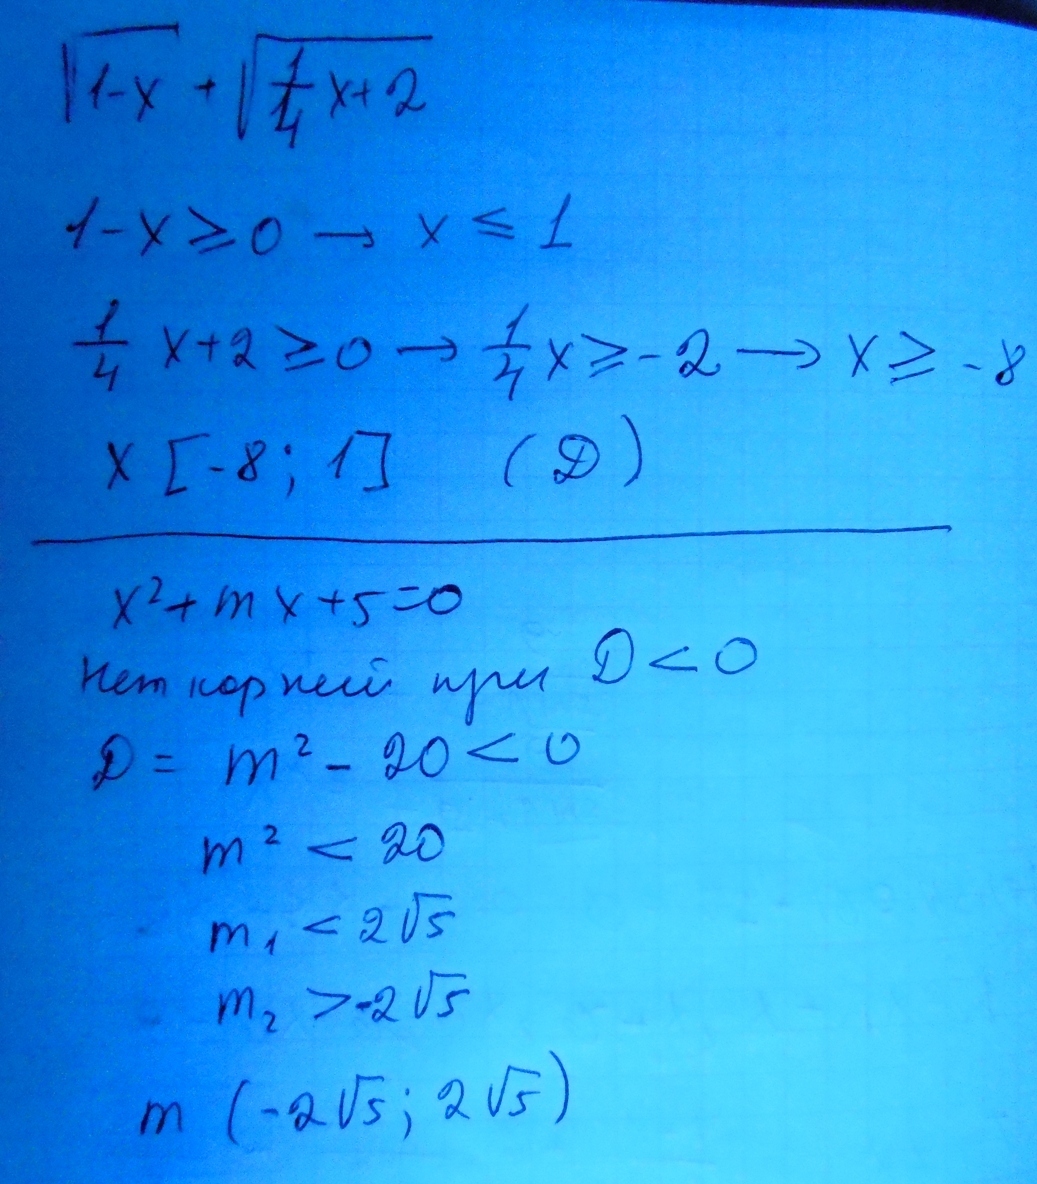 √1-x + √1/4 x+2
1-x ≥ 0 → x ≤ 1
1/4 x+2 ≥ 0 → 1/4 x ≥ -2 → x ≥ -8
x [-8; 1] (D)
x²+mx+5=0
Нет корней при D < 0
D = m² - 20 < 0
m² < 20
m₁ < 2√5
m₂ > -2√5
m (-2√5; 2√5)